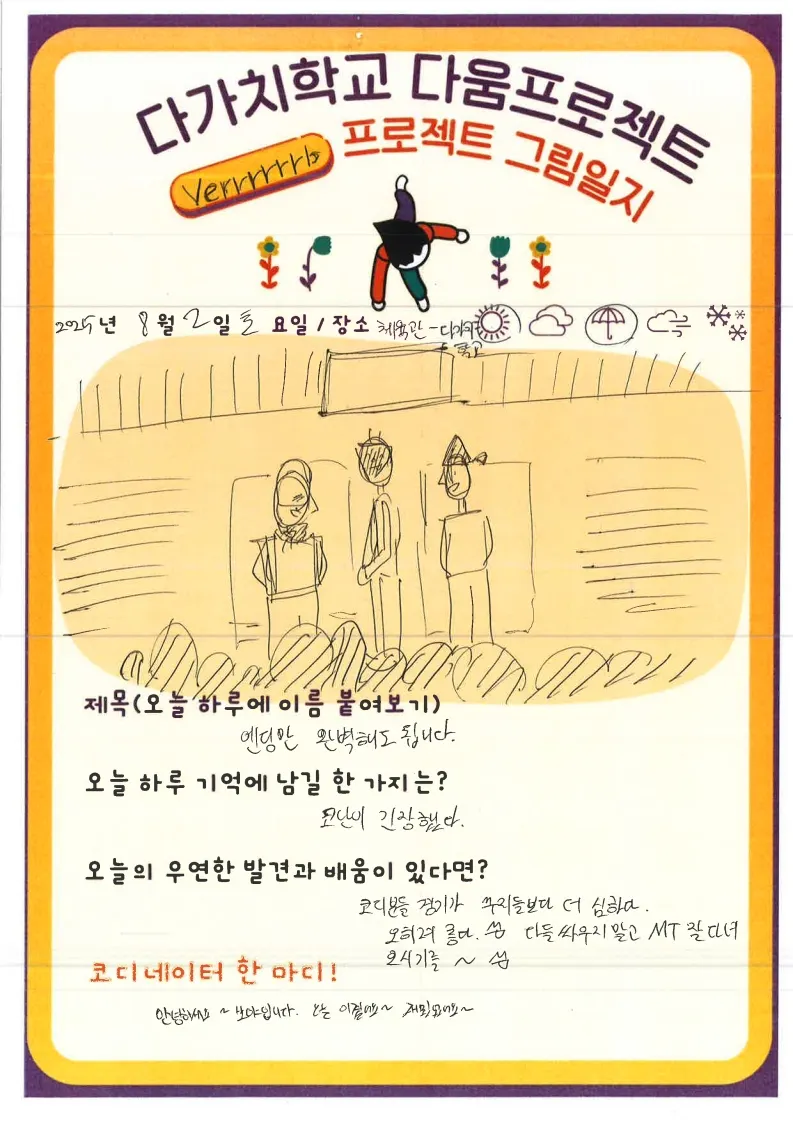 다가치학교 다움프로젝트
Verrrrrrb
프로젝트 그림일지
2025년 8월 2일 토 요일 / 장소 체육관 - 다가치
제목(오늘 하루에 이름 붙여보기)
엔딩만 완벽해도 됩니다.
오늘 하루 기억에 남길 한 가지는?
코난이 긴장했다.
오늘의 우연한 발견과 배움이 있다면?
코디분들 경기가 더 심하다.
오히려 좋다. 다들 싸우지 말고 MT 잘 다녀
오시기를 ~
코디네이터 한 마디!
안녕하세요 ~ 입니다. 오늘 ~ ~